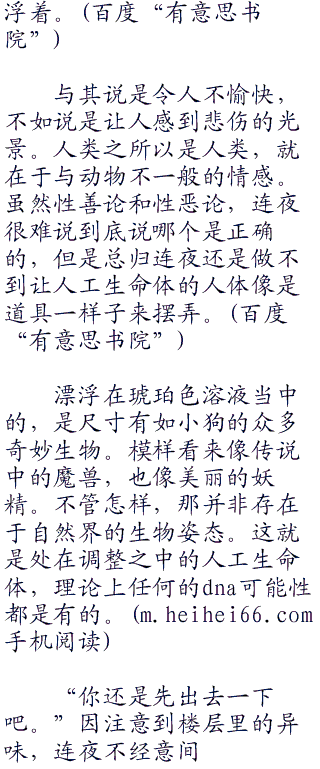 浮着。(百度“有意思书
院”)
与其说是令人不愉快，
不如说是让人感到悲伤的光
景。人类之所以是人类，就
在于与动物不一般的情感。
虽然性善论和性恶论，连夜
很难说到底说哪个是正确
的，但是总归连夜还是做不
到让人工生命体的人体像是
道具一样子来摆弄。(百度
“有意思书院”)
漂浮在琥珀色溶液当中
的，是尺寸有如小狗的众多
奇妙生物。模样看来像传说
中的魔兽，也像美丽的妖
精。不管怎样，那并非存在
于自然界的生物姿态。这就
是处在调整之中的人工生命
体，理论上任何的dna可能性
都是有的。(m.heihei66.com
手机阅读)
“你还是先出去一下
吧。”因注意到楼层里的异
味，连夜不经意间